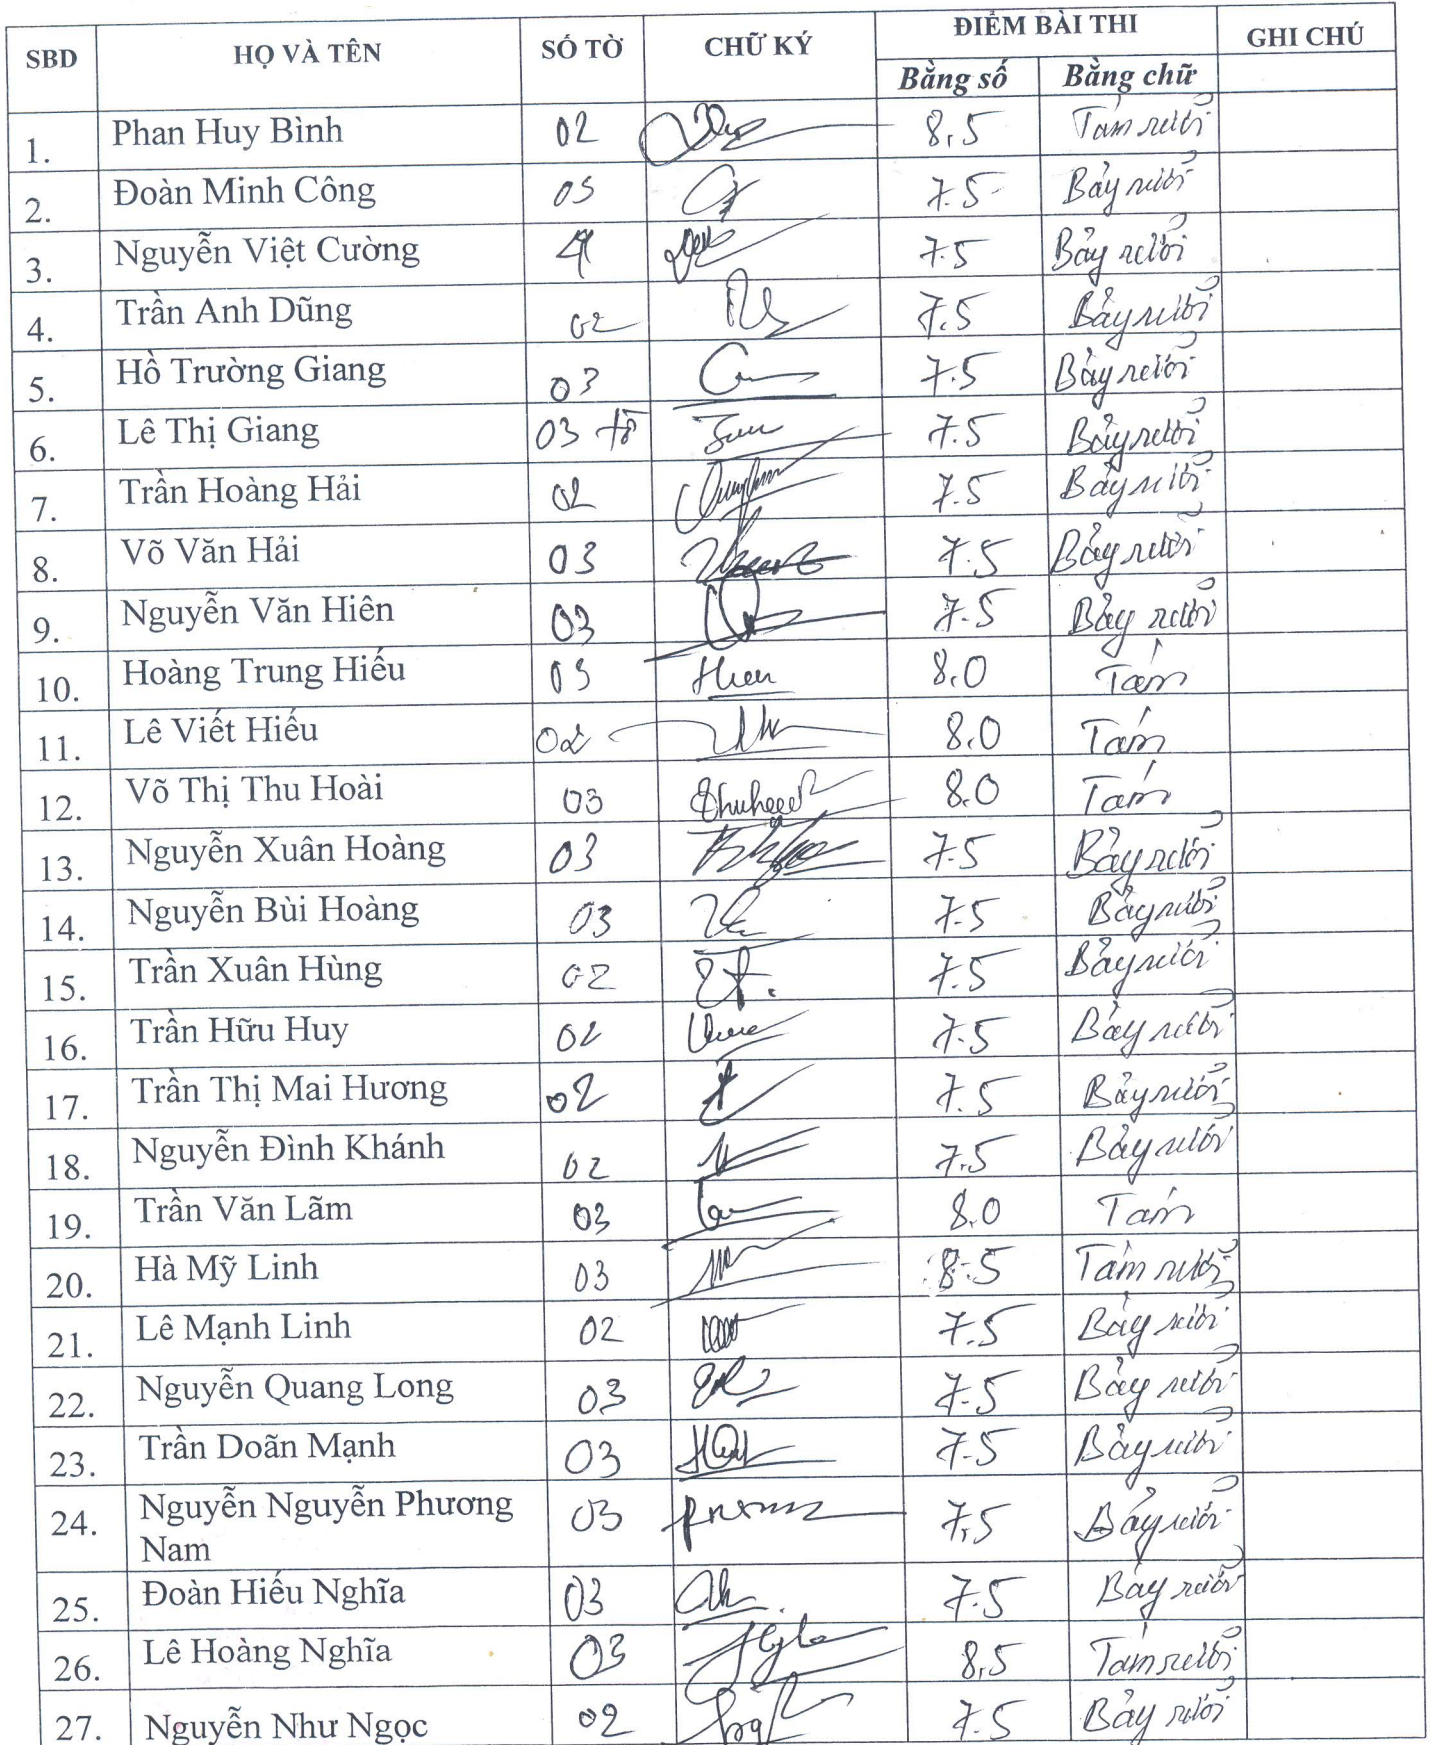 SBD HỌ VÀ TÊN SỐ TỜ CHỮ KÝ ĐIỂM BÀI THI GHI CHÚ
Bằng số Bằng chữ
1. Phan Huy Bình 02 8,5 Tám rưỡi
2. Đoàn Minh Công 03 7.5 Bảy rưỡi
3. Nguyễn Việt Cường 7.5 Bảy rưỡi
4. Trần Anh Dũng 02 7.5 Bảy rưỡi
5. Hồ Trường Giang 03 7.5 Bảy rưỡi
6. Lê Thị Giang 03 tờ 7.5 Bảy rưỡi
7. Trần Hoàng Hải 02 7.5 Bảy rưỡi
8. Võ Văn Hải 03 7.5 Bảy rưỡi
9. Nguyễn Văn Hiên 03 7.5 Bảy rưỡi
10. Hoàng Trung Hiếu 03 Hieu 8.0 Tám
11. Lê Viết Hiếu 02 8.0 Tám
12. Võ Thị Thu Hoài 03 8.0 Tám
13. Nguyễn Xuân Hoàng 03 7.5 Bảy rưỡi
14. Nguyễn Bùi Hoàng 03 7.5 Bảy rưỡi
15. Trần Xuân Hùng 02 7.5 Bảy rưỡi
16. Trần Hữu Huy 02 7.5 Bảy rưỡi
17. Trần Thị Mai Hương 02 7.5 Bảy rưỡi
18. Nguyễn Đình Khánh 02 7.5 Bảy rưỡi
19. Trần Văn Lãm 03 8.0 Tám
20. Hà Mỹ Linh 03 8.5 Tám rưỡi
21. Lê Mạnh Linh 02 7.5 Bảy rưỡi
22. Nguyễn Quang Long 03 7.5 Bảy rưỡi
23. Trần Doãn Mạnh 03 7.5 Bảy rưỡi
24. Nguyễn Nguyễn Phương 03 7,5 Bảy rưỡi
Nam
25. Đoàn Hiếu Nghĩa 03 7.5 Bảy rưỡi
26. Lê Hoàng Nghĩa 03 8,5 Tám rưỡi
27. Nguyễn Như Ngọc 02 7.5 Bảy rưỡi